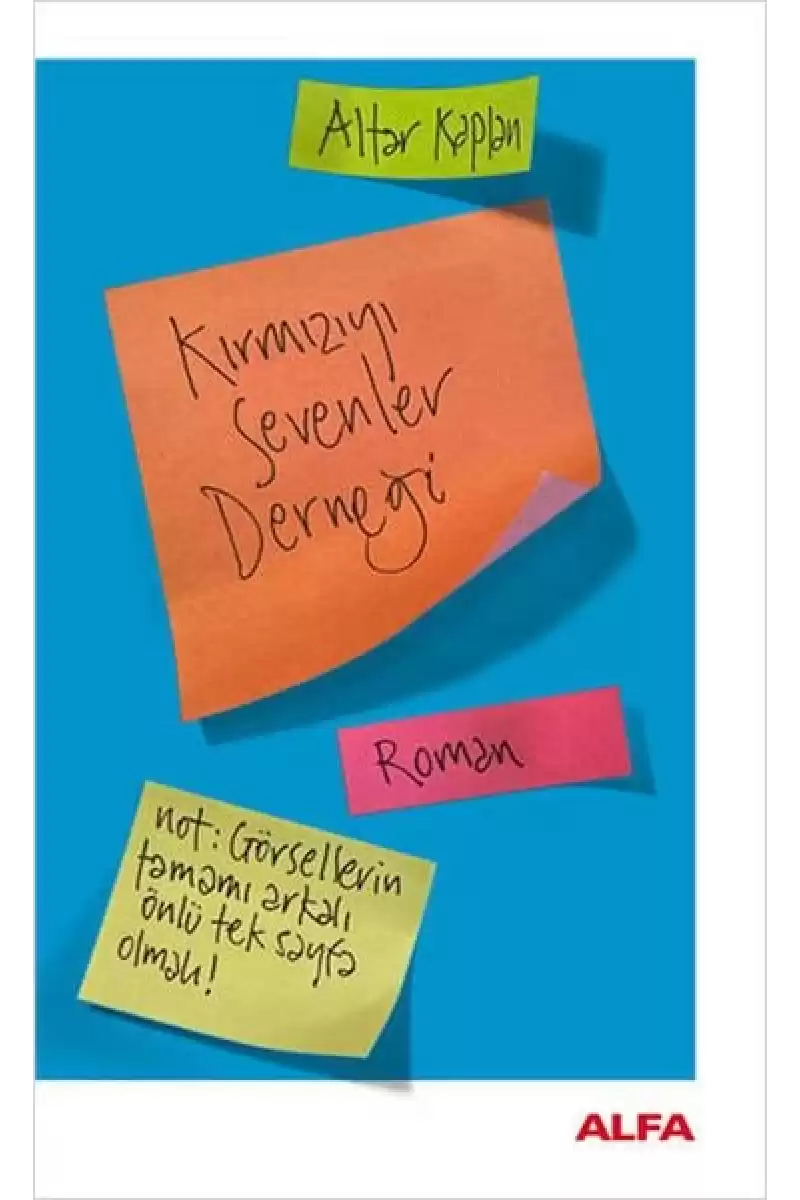 Altar Kaplan
Kırmızıyı
Sevenler
Derneği
Roman
not: Görsellerin
tamamı arkalı
önlü tek sayfa
olmalı!
ALFA